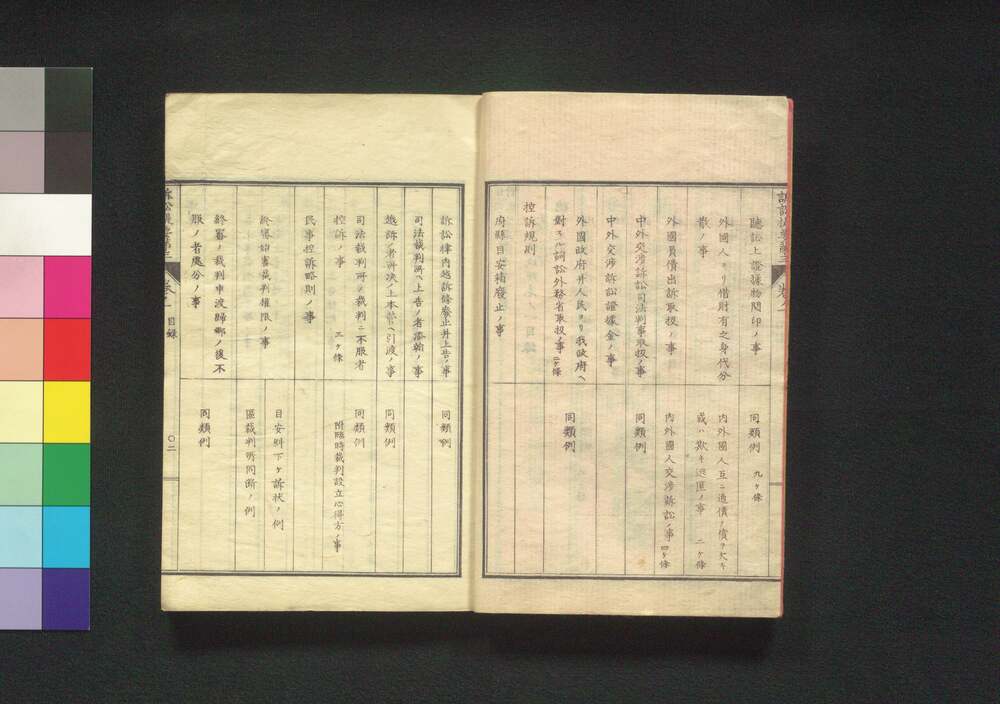 聽訟上證據物閲印ノ事
同類例 九ヶ條
外國人ヨリ借財有之身代分
散ノ事
内外國人互ニ逋債ノ償ヲ欠キ
或ハ欺キ逃匿ノ事 二ヶ條
外國負債出訴取扱ノ事
内外國人交渉訴訟ノ事 四ヶ條
中外交渉訴訟司法判事取扱ノ事
同類例
中外交渉訴訟證據金ノ事
外國政府并人民ヨリ我政府ヘ
對スル詞訟外務省取扱ノ事
同類例
控訴規則
府縣目安箱廢止ノ事
訴訟律内越訴條廢止并上告ノ事
同類例
司法裁判所ヘ上告ノ者添翰ノ事
越訴ノ者所決ノ上本管ヘ引渡ノ事
同類例
司法裁判所ノ裁判ニ不服者
控訴ノ事 二ヶ條
同類例
附臨時裁判設立心得方ノ事
民事控訴略則ノ事
終審始審裁判權限ノ事
目安糾下ヶ訴状ノ例
區裁判所同断ノ例
終審ノ裁判申渡歸郷ノ後不
服ノ者處分ノ事
同類例
目録
〇二